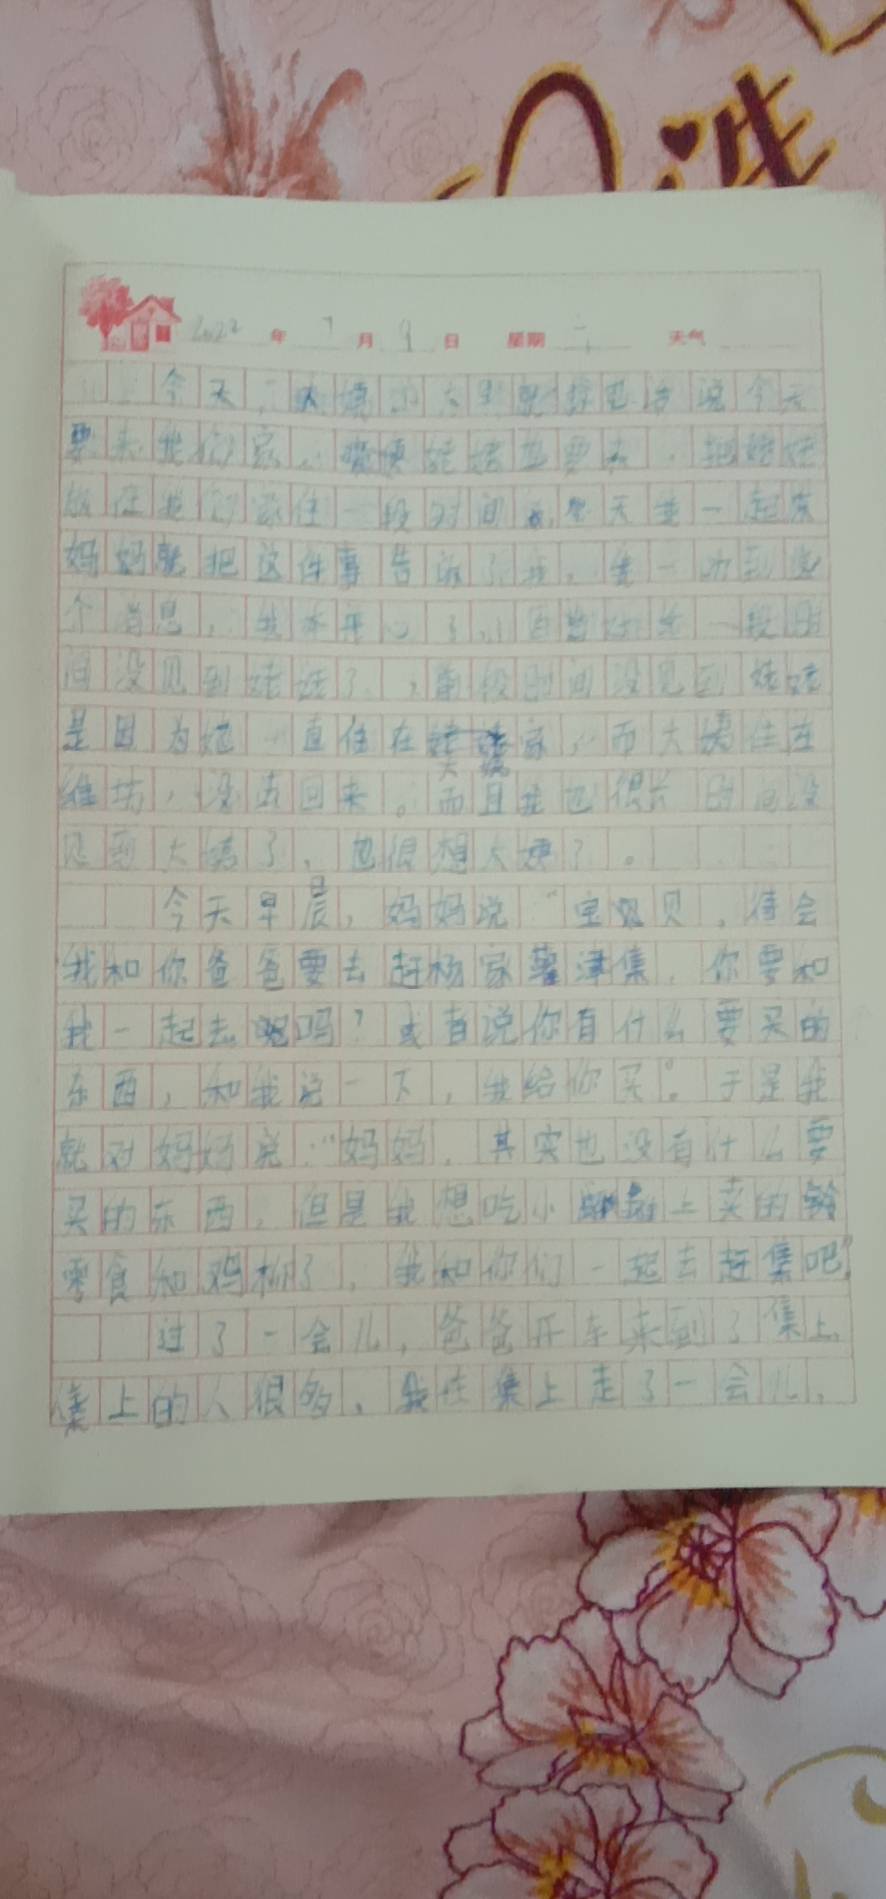 2022年7月9日 星期六 天气
今天,大姨 电话说今天
要来我们家,顺便姥姥也要来,把姥姥
放在我们家住一段时间,今天我一起床
妈妈就把这件事告诉了我,我一听到这
个消息,我本开心了,因为好 一段时
间没见到姥姥了,前段时间没见到姥姥
是因为她一直住在大姨家,而大姨住在
潍坊,没法回来。而且我也很长时间没
见到大姨了,也很想大姨了。
今天早晨,妈妈说“宝贝,待会
我和你爸爸要去赶杨家 津集,你要和
我一起去吗?或者说你有什么要买的
东西,和我说一下,我给你买。”于是我
就对妈妈说:“妈妈,其实也没有什么要
买的东西,但是我想吃小 上卖的
零食和鸡柳了,我和你们一起去赶集吧”
过了一会儿,爸爸开车来到了集上,
集上的人很多,我在集上走了一会儿,